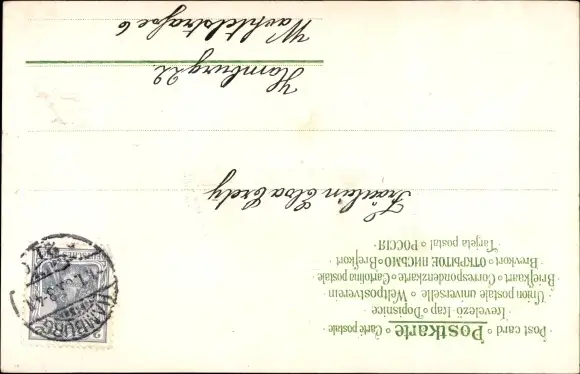 Post card · Postkarte · Carte postale
Levelező-Lap · Dopisnice
Union postale universelle · Weltpostverein
Briefkaart · Correspondenzkarte · Cartolina postale
Brevkort · ОТКРЫТОЕ ПИСЬМО · Brefkort
Tarjeta postal · РОССІЯ
Fräulein Elsa
Hamburg 22
Wachtelstraße 6
HAMBURG
2